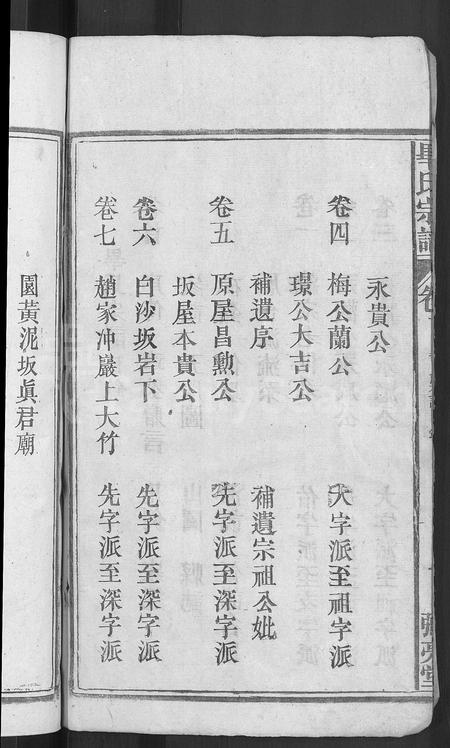 畢氏宗譜 卷
永貴公
卷四 梅公蘭公 大字派至祖字派
環公大吉公
補遺序 補遺宗祖公妣
卷五 原屋昌勲公 先字派至深字派
坂屋本貴公
卷六 白沙坂岩下 先字派至深字派
卷七 趙家冲巖上大竹 先字派至深字派
園黃泥坂眞君廟